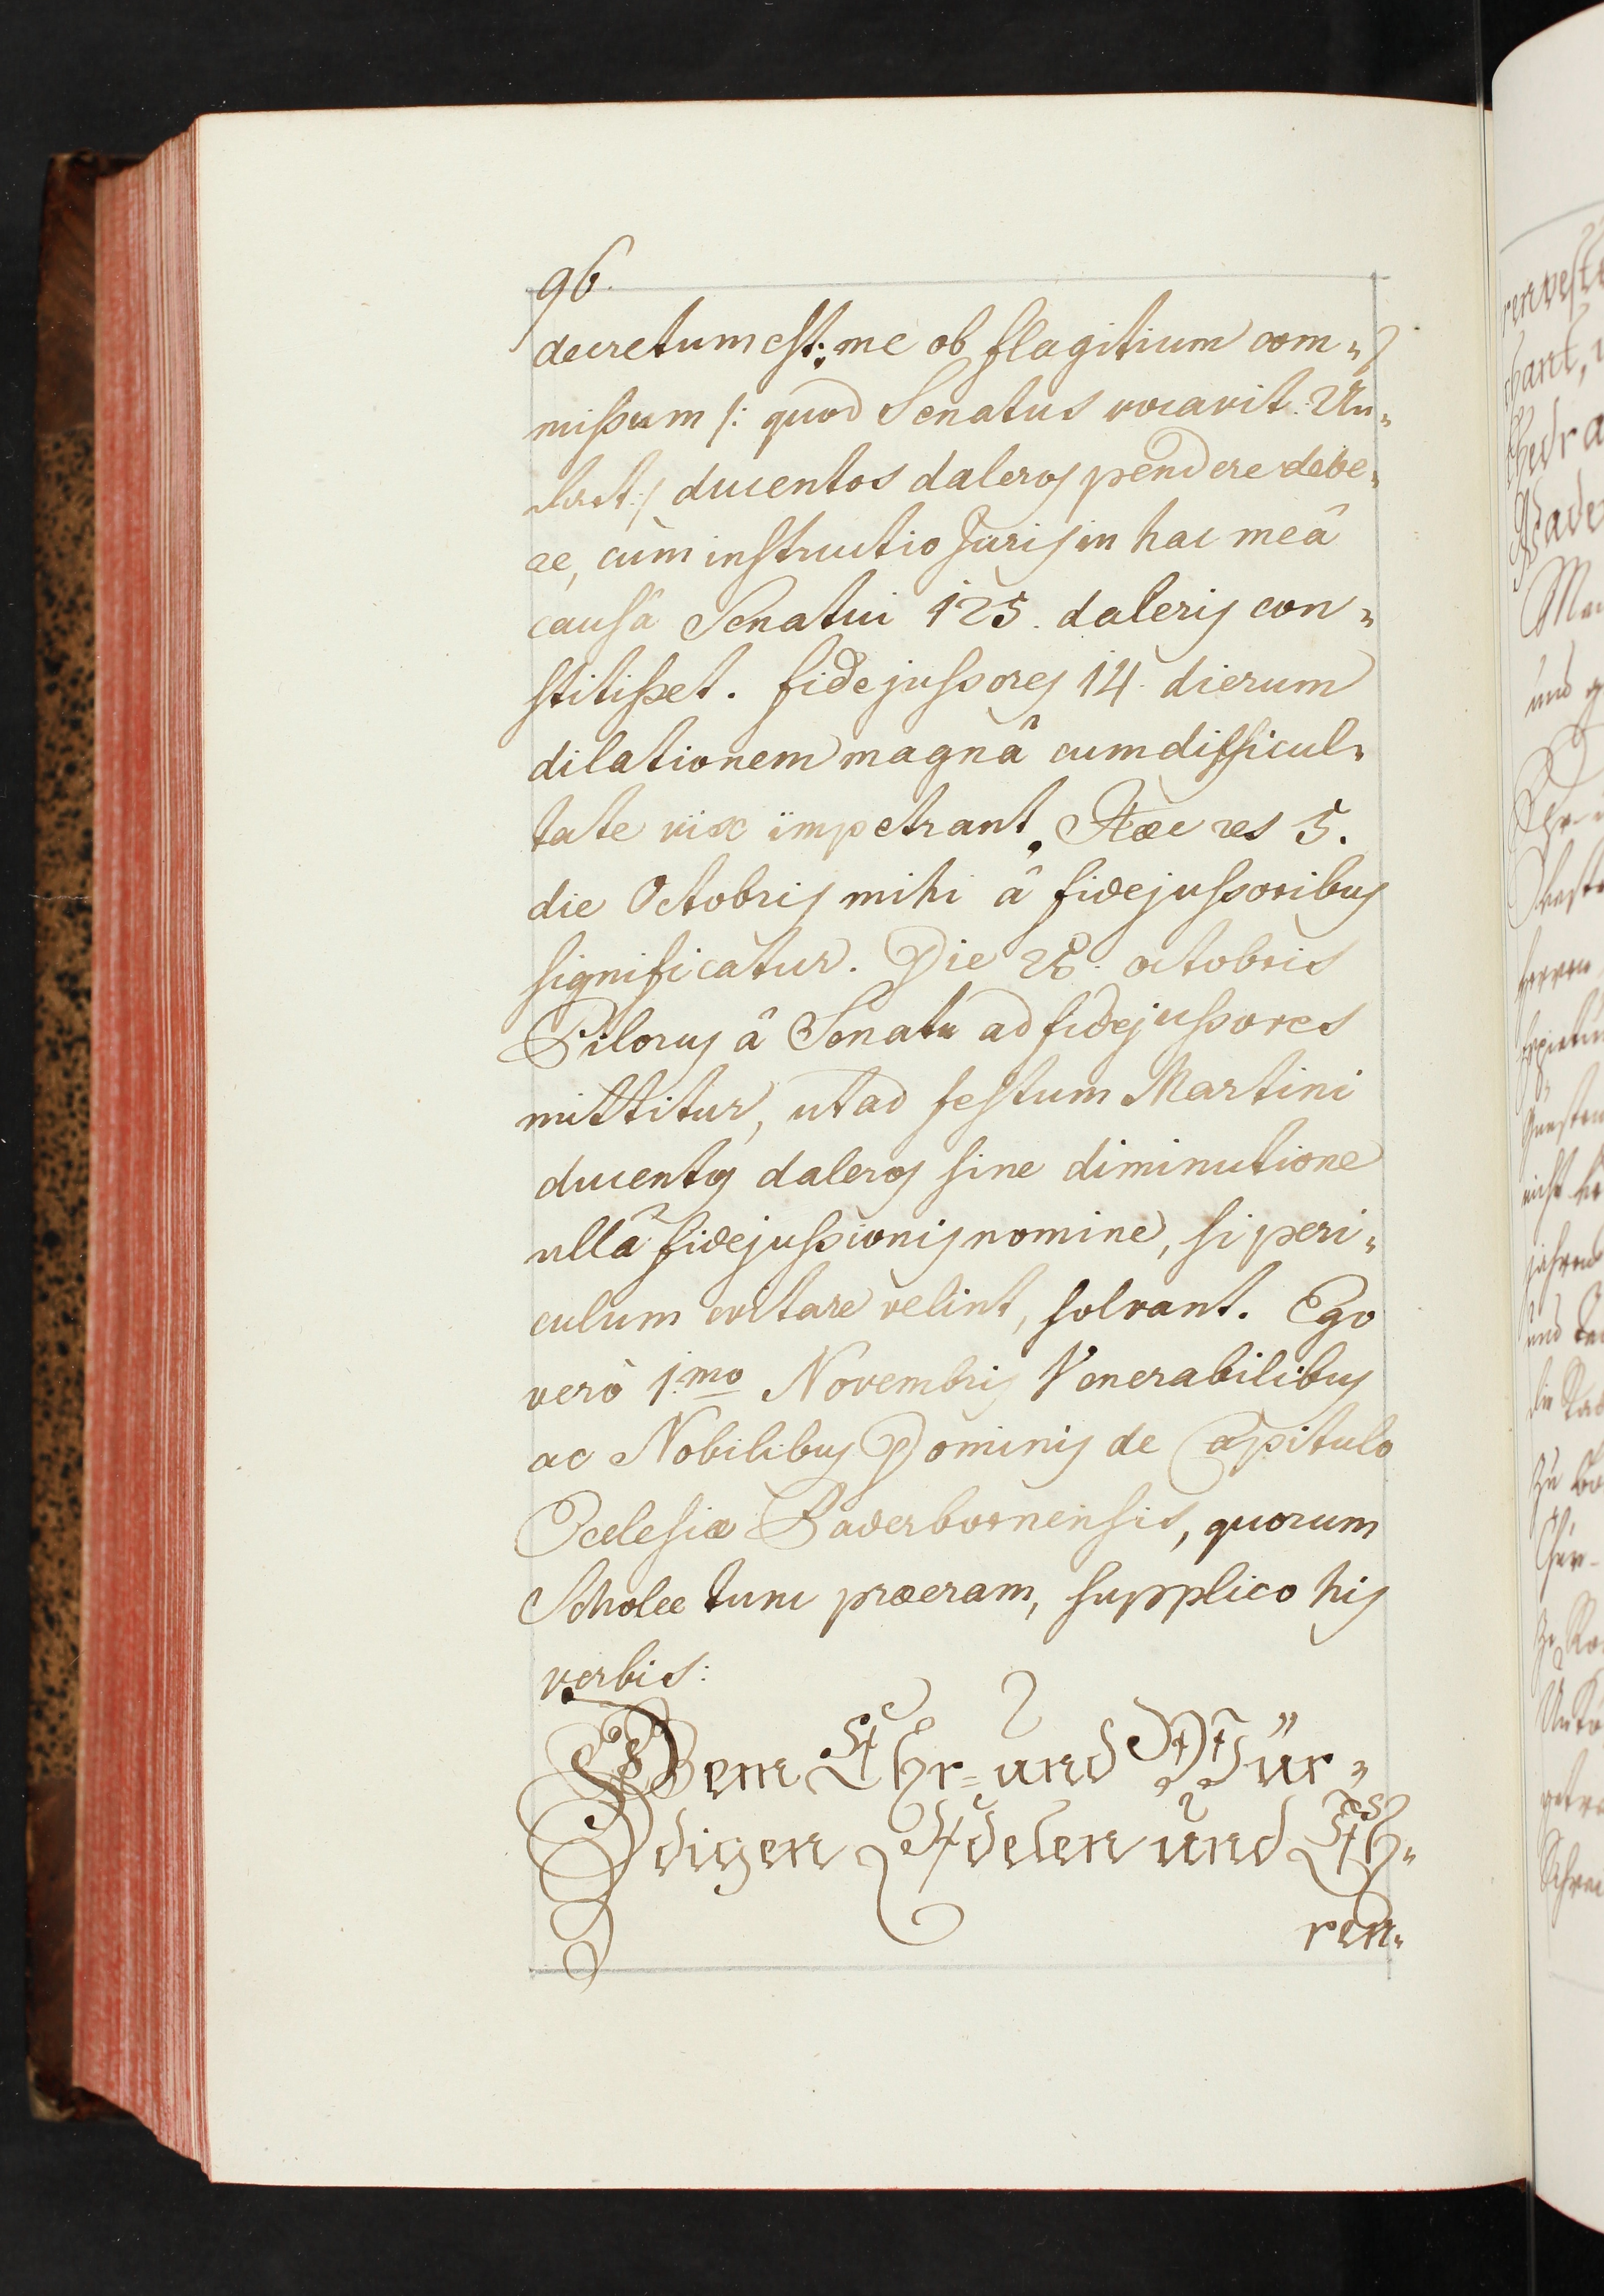 96.
decretum est: me ob flagitium com„
missum /: quod Senatus vocavit: Un„
dert:/ ducentos daleros pendere debe„
re, cùm instructio Juris in hac meâ
causâ Senatui 125. daleris con„
stitisset. fidejussores 14. dierum
dilationem magnâ cum difficul„
tate vix impetrant. Hæc res 5.
die Octobris mihi â fidejussoribus
significatur. Die octobris
Pilorus â Senatu ad fidejussores
mittitur, ut ad festum Martini
ducentos daleros sine diminutione
ullâ fidejussionis nomine, si peri„
culum evitare velint, solvant. Ego
verò 1.mo Novembris Venerabilibus
ac Nobilibus Dominis de Capitulo
Ecclesiæ Paderbornensis, quorum
Scholæ tunc præeram, supplico his
verbis:
Dem Ehr= und Wür„
digen Adelen und Eh„
ren„